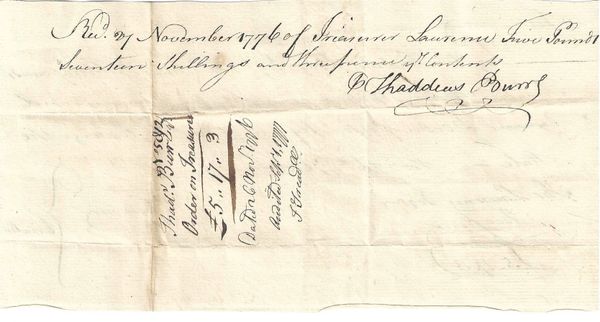 Recd. 27 November 1776 of Treasurer Laurence Five Pounds
Seventeen Shillings and three pence ye. Contents
Thaddeus Burr
No 5092
Thads. Burr
Order on Treasurer
£5 " 17 " 3
Dated 26 Novr. 1776
Audited Sept. 1. 1777